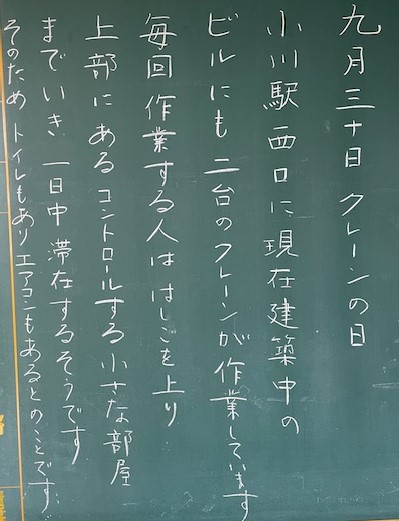 九月三十日 クレーンの日
小川駅西口に現在建築中の
ビルにも 二台のクレーンが作業しています
毎回 作業する人は はしごを上り
上部に ある コントロールする 小さな部屋
まで いき 一日中 滞在するそうです
そのため トイレもあり エアコンもあるとのことです。